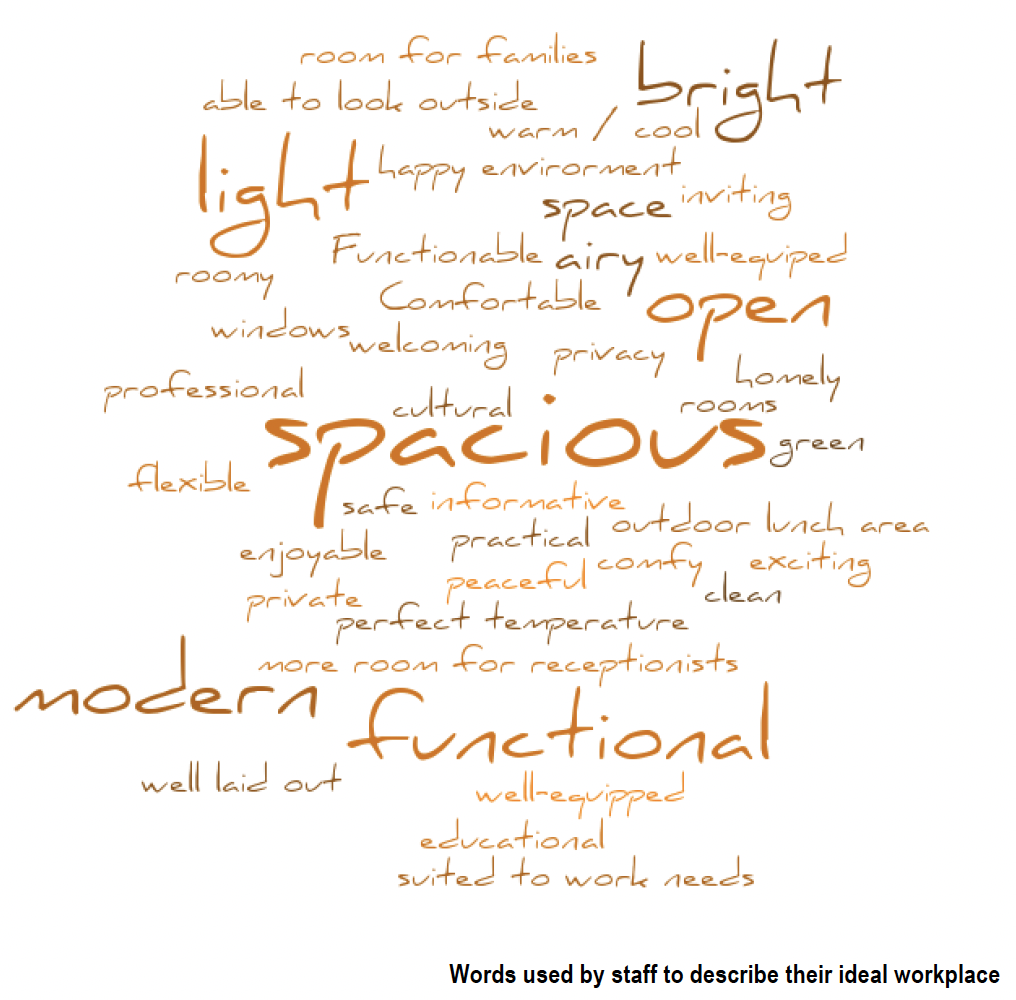 room for families
bright
able to look outside
warm / cool
light
happy envirorment
inviting
space
Functionable
airy
well-equiped
roomy
Comfortable
open
windows
welcoming
privacy
homely
professional
cultural
rooms
spacious
green
flexible
safe
informative
outdoor lunch area
practical
enjoyable
comfy
exciting
peaceful
clean
private
perfect temperature
more room for receptionists
modern
functional
well laid out
well-equipped
educational
suited to work needs
Words used by staff to describe their ideal workplace